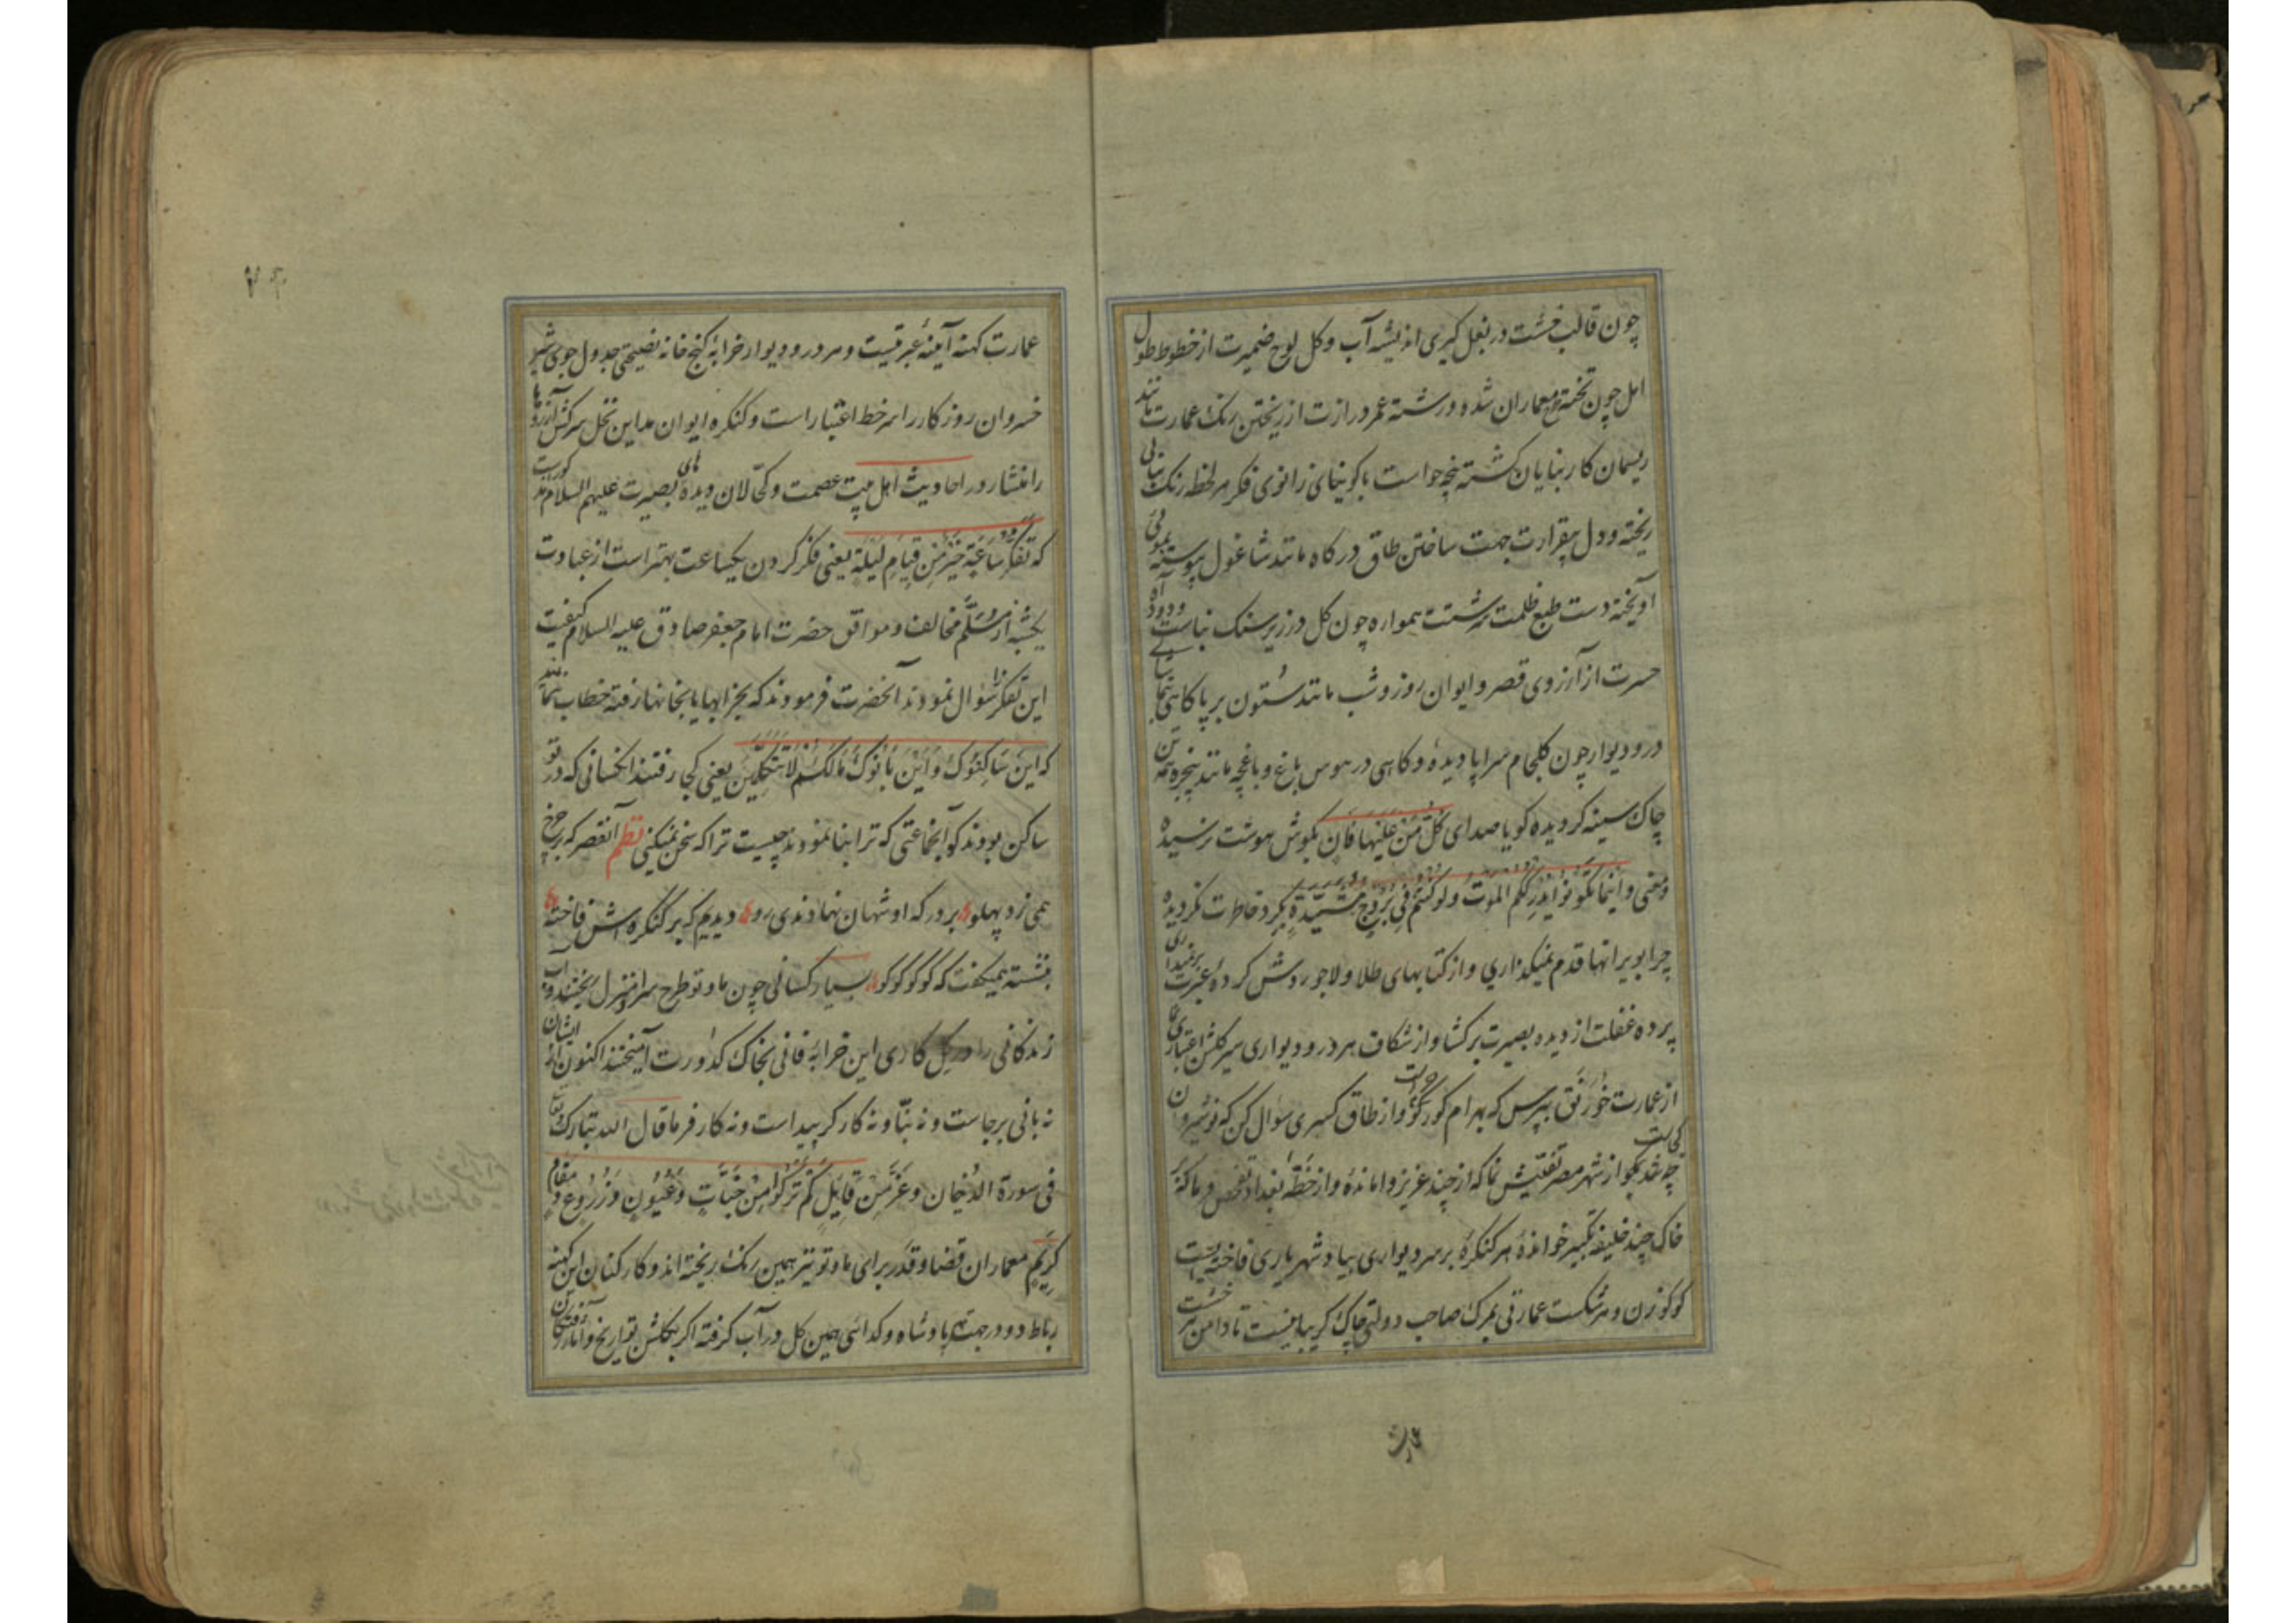 چون قالب خشت در بغل گیری اندیشه آب و گل لوح ضمیرت از خطوط طول
امل چون تخته معماران شده و رشته عمر درازت از ریختن رنگ عمارت مانند
ریسمان کار بنایان گشته پنجه حواست با گونیای زانوی فکر هر لحظه رنگ بنائی
ریخته و دل بیقرارت جهت ساختن طاق درگاه مانند شاغول پیوسته بموئی
آویخته دست طبع ظلمت سرشتت همواره چون گل در زیر سنگ بناست و دود آه
حسرت از آرزوی قصر و ایوان روز و شب مانند ستون بر پا گاهی بتماشای
در و دیوار چون گلجام سراپا دیدهٔ و گاهی در هوس باغ و باغچه مانند پنجره همه تن
چاک سینه گردیده گویا صدای کُلُّ مَنْ عَلَیْها فَانٍ بگوش هوشت نرسیده
و معنی وَ اَیْنَمَا تَکُونُوا یُدْرِکْکُمُ الْمَوْتُ وَلَوْ کُنْتُمْ فِی بُرُوجٍ مُشَیَّدَةٍ بگرد خاطرت نگردیده
چرا بویرانها قدم نمیگذاری و از کتابهای طلا و لاجوردش گرده عبرت برنمیداری
پرده غفلت از دیده بصیرت برگشا و از شکاف هر در و دیواری سیر گلشن اعتباری نما
از عمارت خَوَرْنَق بپرس که بهرام گورت کو و از طاق کسری سؤال کن که نوشیروان
چه شد بگو از شهر مصر تفتیش نما که از چند عزیز وامانده و از خطّهٔ بغداد تفحص فرما که بر
خاک چند خلیفه تکبیر خواندهٔ هر کنگرهٔ بر سر دیواری بیاد شهریاری فاخته ایست
کوکو زن و هر شکست عمارتی بمرگ صاحب دولتی چاک گریبانیست تا دامن هر خشت
عمارت کهنه آینهٔ عبرتیست و هر در و دیوار خرابهٔ گنج خانه نصیحتی جدول جوی شیر
خسروان روزکار را سر خط اعتبار است و کنگره ایوان مداین نخل سرکش آرزوها
را منشار در احادیث اهل بیت عصمت و کحّالان دیده های بصیرت علیهم السلام مذکورست
که تَفَکُّرُ سَاعَةٍ خَیْرٌ مِنْ قِیَامِ لَیْلَةٍ یعنی فکر کردن یکساعت بهتر است از عبادت
یکشبه از مُسَلَّم مخالف و موافق حضرت امام جعفر صادق علیه السلام کیفیت
این تفکر را سؤال نمودند آنحضرت فرمودند که بخرابها یا بخانها رفته خطاب نمایند
که اَیْنَ سَاکِنُوکَ وَ اَیْنَ بَانُوکَ مَالَکَ لَا تَتَکَلَّمِینَ یعنی کجا رفتند آنکسانی که در تو
ساکن بودند کو آنجماعتی که ترا بنا نمودند چیست ترا که سخن نمیکنی نظم آنقصر که بر چرخ
همی زد پهلو بر درگه او شهان نهادندی رو دیدیم که بر کنگره اش فاخته
بنشسته همیگفت که کو کو کو کو بسیار کسانی چون ما و تو طرح سرا و منزل ریختند و آب
زندگانی را در گل کاری این خرابهٔ فانی بخاک کدورت آمیختند اکنون از ایشان
نه بانی برجاست و نه بنّا و نه کارگر پیداست و نه کارفرما قال الله تبارک و تعالی
فی سورة الدخان وَ عَزَّ مِنْ قَایِلٍ کَمْ تَرَکُوا مِنْ جَنَّاتٍ وَ عُیُونٍ وَ زُرُوعٍ وَ مَقَامٍ
کَرِیمٍ معماران قضا و قدر برای ما و تو نیز همین رنگ ریخته اند و کارکنان این کهنه
رباط دو در جهت پادشاه و گدائی همین گل در آب گرفته اگر بگلشن تواریخ و آثار رفتگان